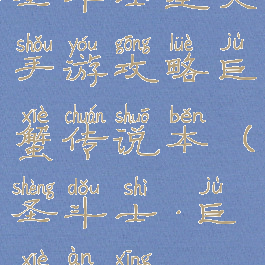 shǒu yóu gōng lüè jù
手游攻略巨
xiè chuán shuō běn
蟹传说本（
shèng dòu shì jù
圣斗士·巨
xiè àn xīng